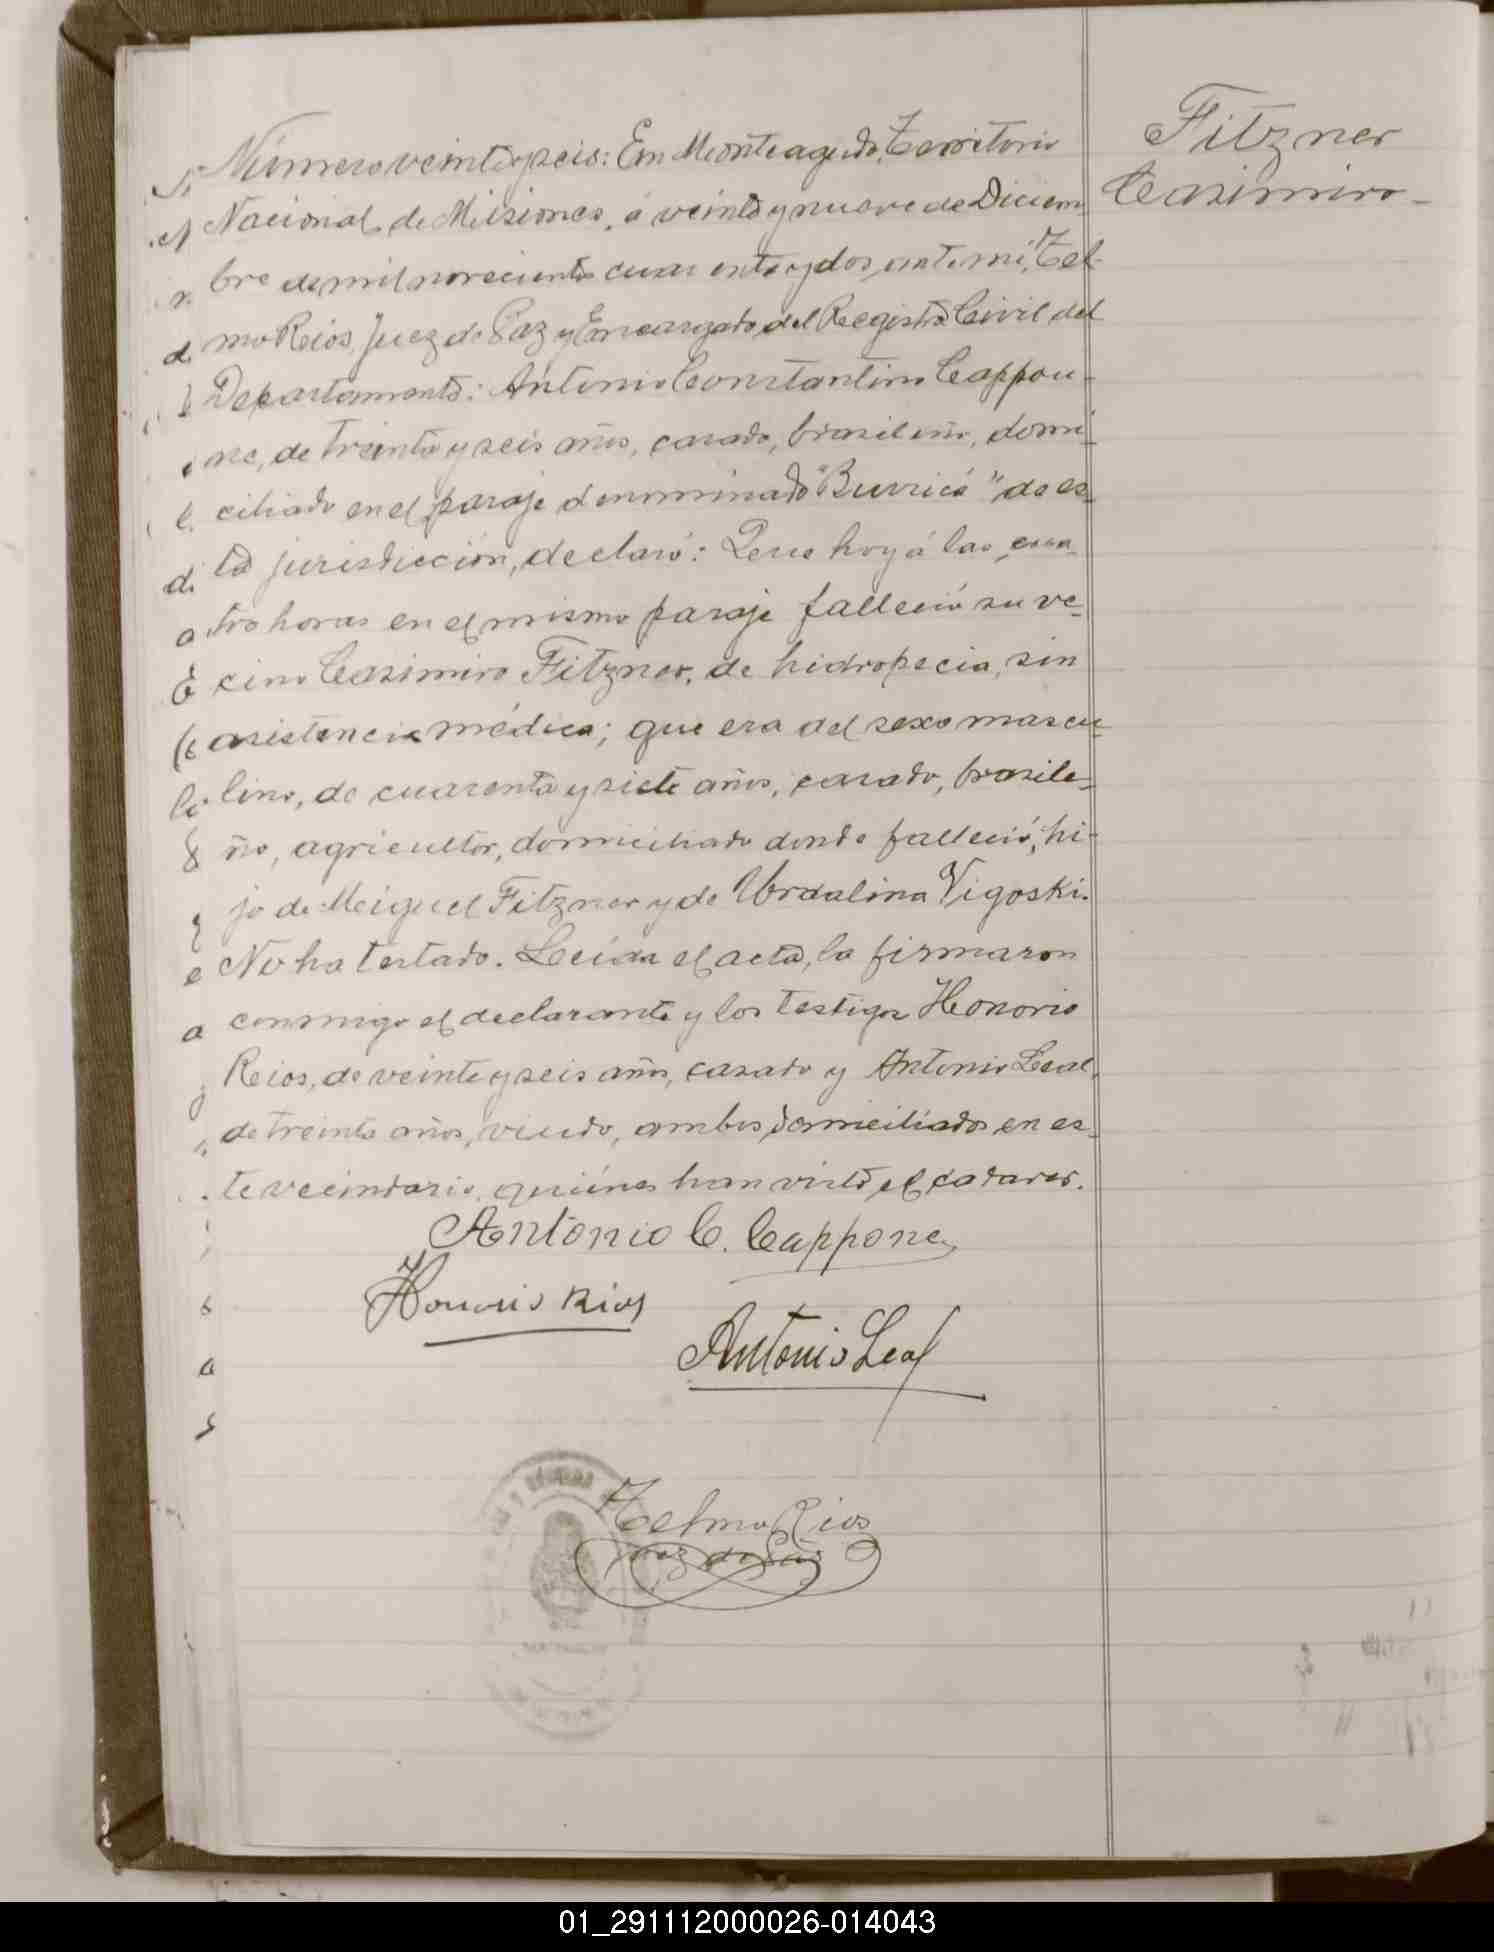 Fitzner
Casimiro -
Número veinte y seis: En Monteagudo, Territorio
Nacional de Misiones, á veinte y nueve de Diciem
bre de mil novecientos cuarenta y dos, ante mí, Tel-
mo Reios, Juez de Paz y Encargado del Registro Civil del
Departamento: Antonio Constantino Cappou-
ne, de treinta y seis años, casado, brasileño, domi-
ciliado en el paraje denominado "Burricá" de es-
ta jurisdicción, declaró: Que hoy á las cua-
tro horas en el mismo paraje falleció su ve-
cino Casimiro Fitzner, de hidropecia, sin
asistencia médica; que era del sexo mascu-
lino, de cuarenta y siete años, casado, brasile-
ño, agricultor, domiciliado donde falleció, hi-
jo de Meiguel Fitzner y de Urdalina Vigoski.
No ha testado. Leída el acta, la firmaron
conmigo el declarante y los testigos Honorio
Reios, de veinte y seis años, casado y Antonio Leal,
de treinta años, viudo, ambos domiciliados en es-
te vecindario, quiénes han visto el cadaver.
Antonio C. Cappone
Honorio Rios
Antonio Leal
Telmo Rios
Juez de Paz
01_291112000026-014043